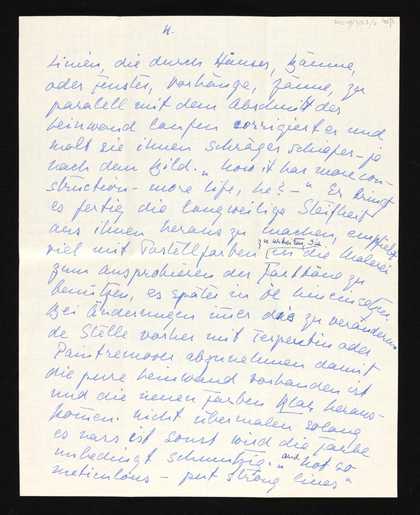 4.
Linien, die durch Häuser, Bäume,
oder Fenster, Vorhänge, Zäune, zu
paralell mit dem Abschnitt der
Leinwand laufen corrigiert er und
malt sie ihnen schräger schärfer - je
nach dem Bild. „Now it has more con-
struction - more life, he?-" Er bringt
es fertig die langweilige Steifheit
aus ihnen heraus zu machen, empfiehlt
viel mit Pastellfarben zu arbeiten, in die Malerei
zum ausprobieren der Farbtöne zu
benützen, es später in Öl hineinsetzen.
Bei Änderungen immer das zu verändern
de Stelle vorher mit Terpentin oder
Paintremover abzunehmen damit
die pure Leinwand vorhanden ist
und die neuen Farben klar heraus-
kommen. Nicht übermalen solang
es nass ist sonst wird die Farbe
unbedingt schmutzig. „and not so
meticulous - put strong lines"